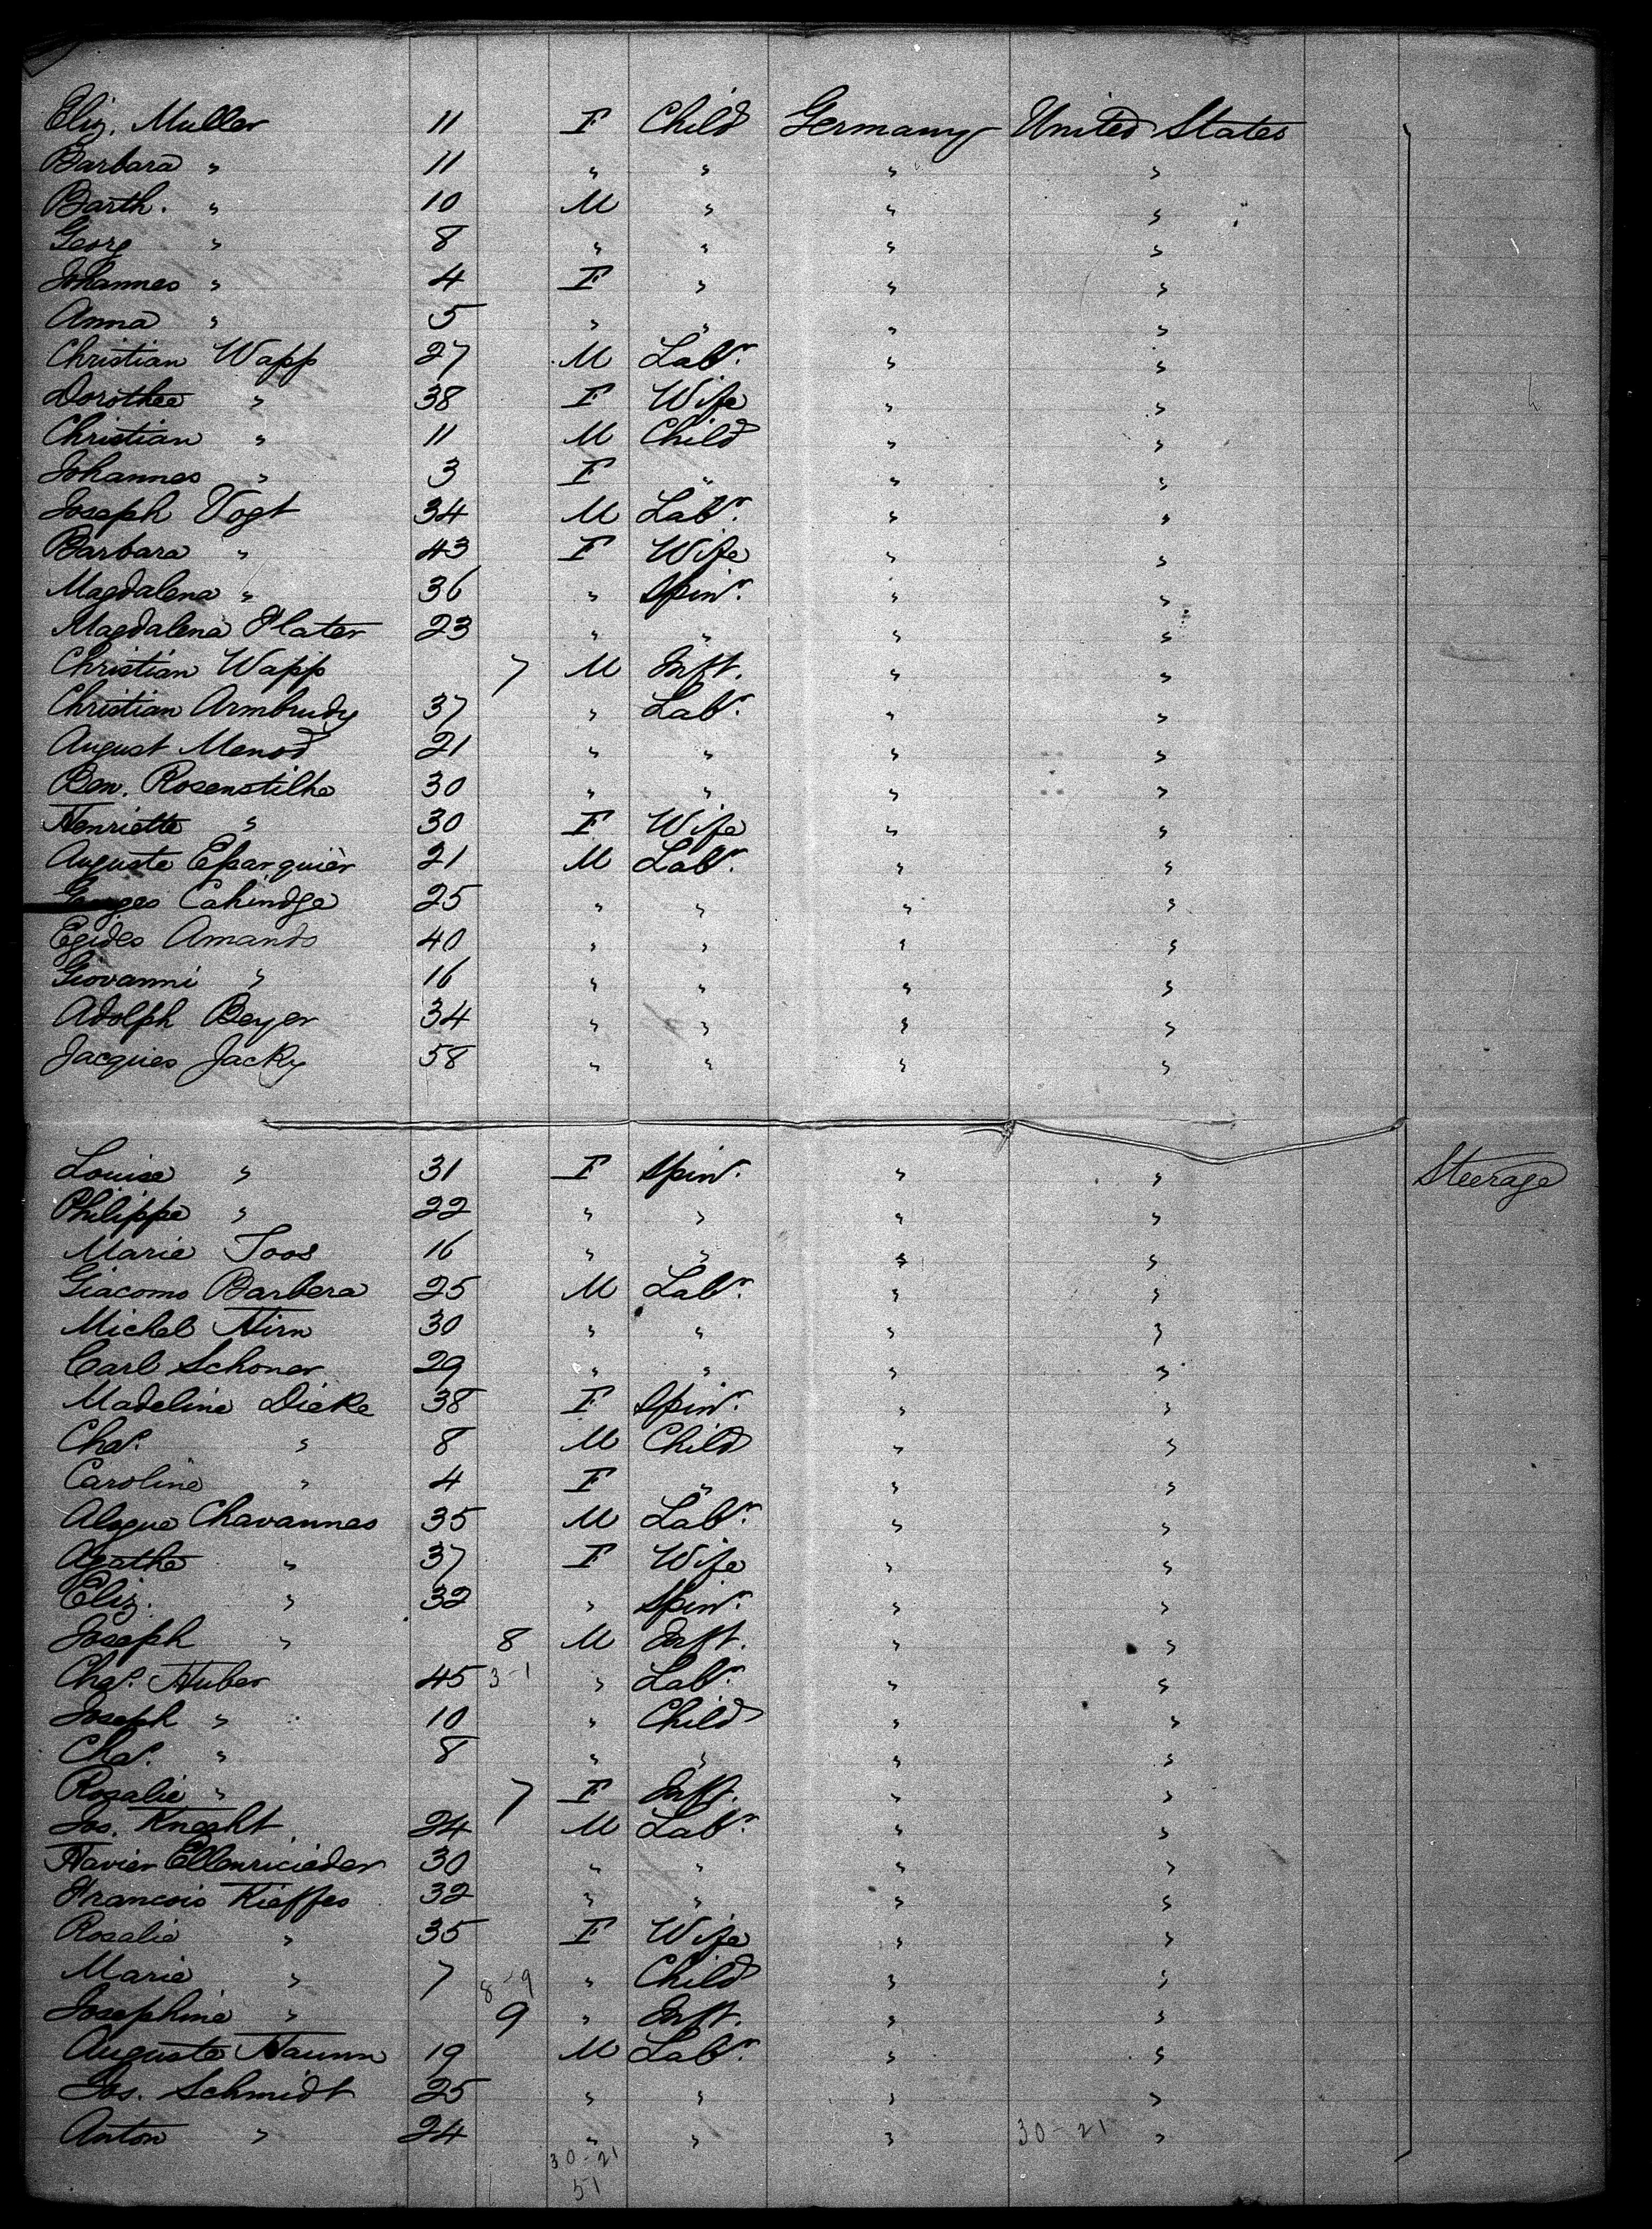 Eliz. Muller 11 F Child Germany United States
Barbara " 11 " " " "
Barth. " 10 M " " "
Georg " 8 " " " "
Johannes " 4 F " " "
Anna " 5 " " " "
Christian Wapp 27 M Labr. " "
Dorothee " 38 F Wife " "
Christian " 11 M Child " "
Johannes " 3 F " " "
Joseph Vogt 34 M Labr. " "
Barbara " 43 F Wife " "
Magdalena " 36 " Spinr. " "
Magdalena Plater 23 " " " "
Christian Wapp 7 M Inft. " "
Christian Armbrudy 37 " Labr. " "
August Menod 21 " " " "
Ben. Rosenstilhe 30 " " " "
Henriette " 30 F Wife " "
Auguste 21 M Labr. " "
Georges Cahindge 25 " " " "
Egides Amands 40 " " " "
Giovanni " 16 " " " "
Adolph Beyer 34 " " " "
Jacques Jacky 58 " " " "
Louise " 31 F Spinr. " " Steerage
Philippe " 22 " " " "
Marie Joos 16 " " " "
Giacomo Barbera 25 M Labr. " "
Michel Hirn 30 " " " "
Carl Schoner 29 " " " "
Madeline Dieke 38 F Spinr. " "
Chas. " 8 M Child " "
Caroline " 4 F " " "
Alogue Chavannes 35 M Labr. " "
Agathe " 37 F Wife " "
Eliz. " 32 " Spinr. " "
Joseph " 8 M Inft. " "
Chas. Huber 45 3-1 " Labr. " "
Joseph " 10 " Child " "
Chas. " 8 " " " "
Rosalie " 7 F Inft. " "
Jos. Knecht 24 M Labr. " "
Xavier Ellenricieder 30 " " " "
Francois Kieffes 32 " " " "
Rosalie " 35 F Wife " "
Marie " 7 8-9 " Child " "
Josephine " 9 " Inft. " "
Auguste Haunn 19 M Labr. " "
Jos. Schmidt 25 " " " "
Anton " 24 " " " 30-21 "
30-21
51